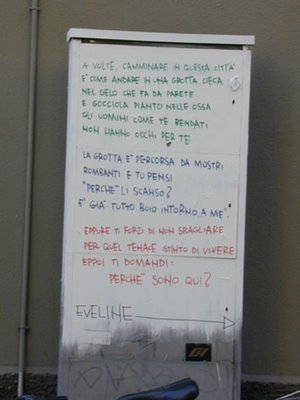 A VOLTE, CAMMINARE IN QUESTA CITTA'
E' COME ANDARE IN UNA GROTTA CIECA
NEL GELO CHE FA DA PARETE
E GOCCIOLA PIANTO NELLE OSSA
GLI UOMINI COME TE BENDATI
NON HANNO OCCHI PER TE
LA GROTTA E' PERCORSA DA MOSTRI
ROMBANTI E TU PENSI
"PERCHE' LI SCANSO?
E' GIA' TUTTO BUIO INTORNO A ME".
EPPURE TI FORZI DI NON SBAGLIARE
PER QUEL TENACE ISTINTO DI VIVERE
EPPOI TI DOMANDI:
PERCHE' SONO QUI?
EVELINE